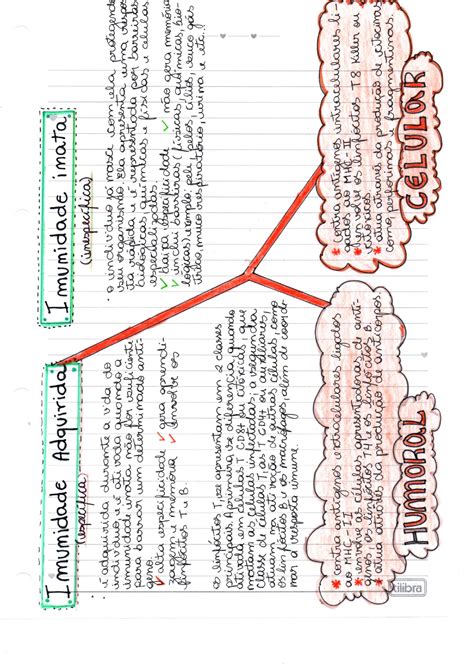 Imunidade Adquirida
(específica)
é adquirida durante a vida do
indivíduo, e é ativada quando a
imunidade inata não for suficiente
para barrar um determinado antí-
geno.
✓ alta especificidade ✓ gera aprendi-
zagem e memória ✓ envolve os
linfócitos T e B.
os linfócitos T, se apresentam em 2 classes
principais. A primeira, se diferencia, quando
ativada em células T CD8+ ou citotóxicas, que
matam as células infectadas; a segunda
classe de células T, as T CD4+ ou auxiliares,
atuam na ativação de outras células, como
os linfócitos B e os macrófagos, além de coorde-
nar a resposta imune.
Imunidade inata
(inespecífica)
o indivíduo já nasce com ela, protegendo
seu organismo. Ela apresenta uma respos-
ta rápida e é representada por barreiras
biológicas, químicas e físicas e células
especializadas.
✓ baixa especificidade ✓ não gera memória
✓ inclui barreiras (físicas, químicas, bio-
lógicas) exemplo: pele, pelos, cílios, suco gás-
trico, muco respiratório, urina e etc.
* contra antígenos extracelulares ligados
ao MHC-I
* envolve as células apresentadoras de antí-
genos, os linfócitos T4 e os linfócitos B.
* atua através da produção de anticorpos.
HUMORAL
* Contra antígenos intracelulares li-
gados ao MHC-II
* envolve os linfócitos T8 Killer ou
citotóxicos.
* atua através da produção de citocinas
como perforinas e fragmentinas.
CELULAR
tilibra